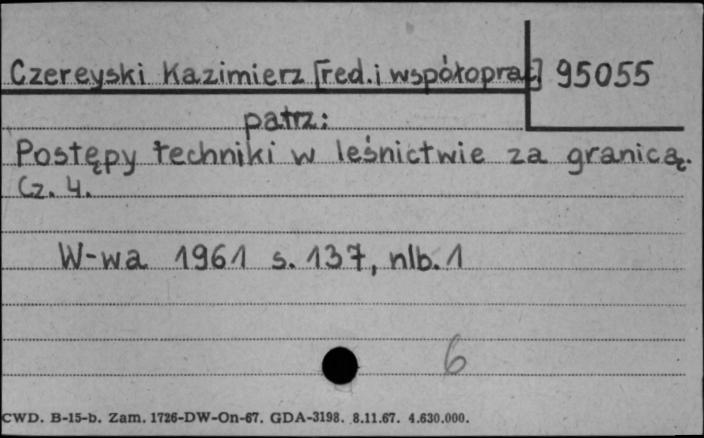 Czereyski Kazimierz [red. i współoprac] 95055
patrz:
Postępy techniki w leśnictwie za granicą.
Cz. 4.
W-wa 1961 s. 137, nlb. 1
6
CWD. B-15-b. Zam. 1726-DW-On-67. GDA-3198. 8.11.67. 4.630.000.